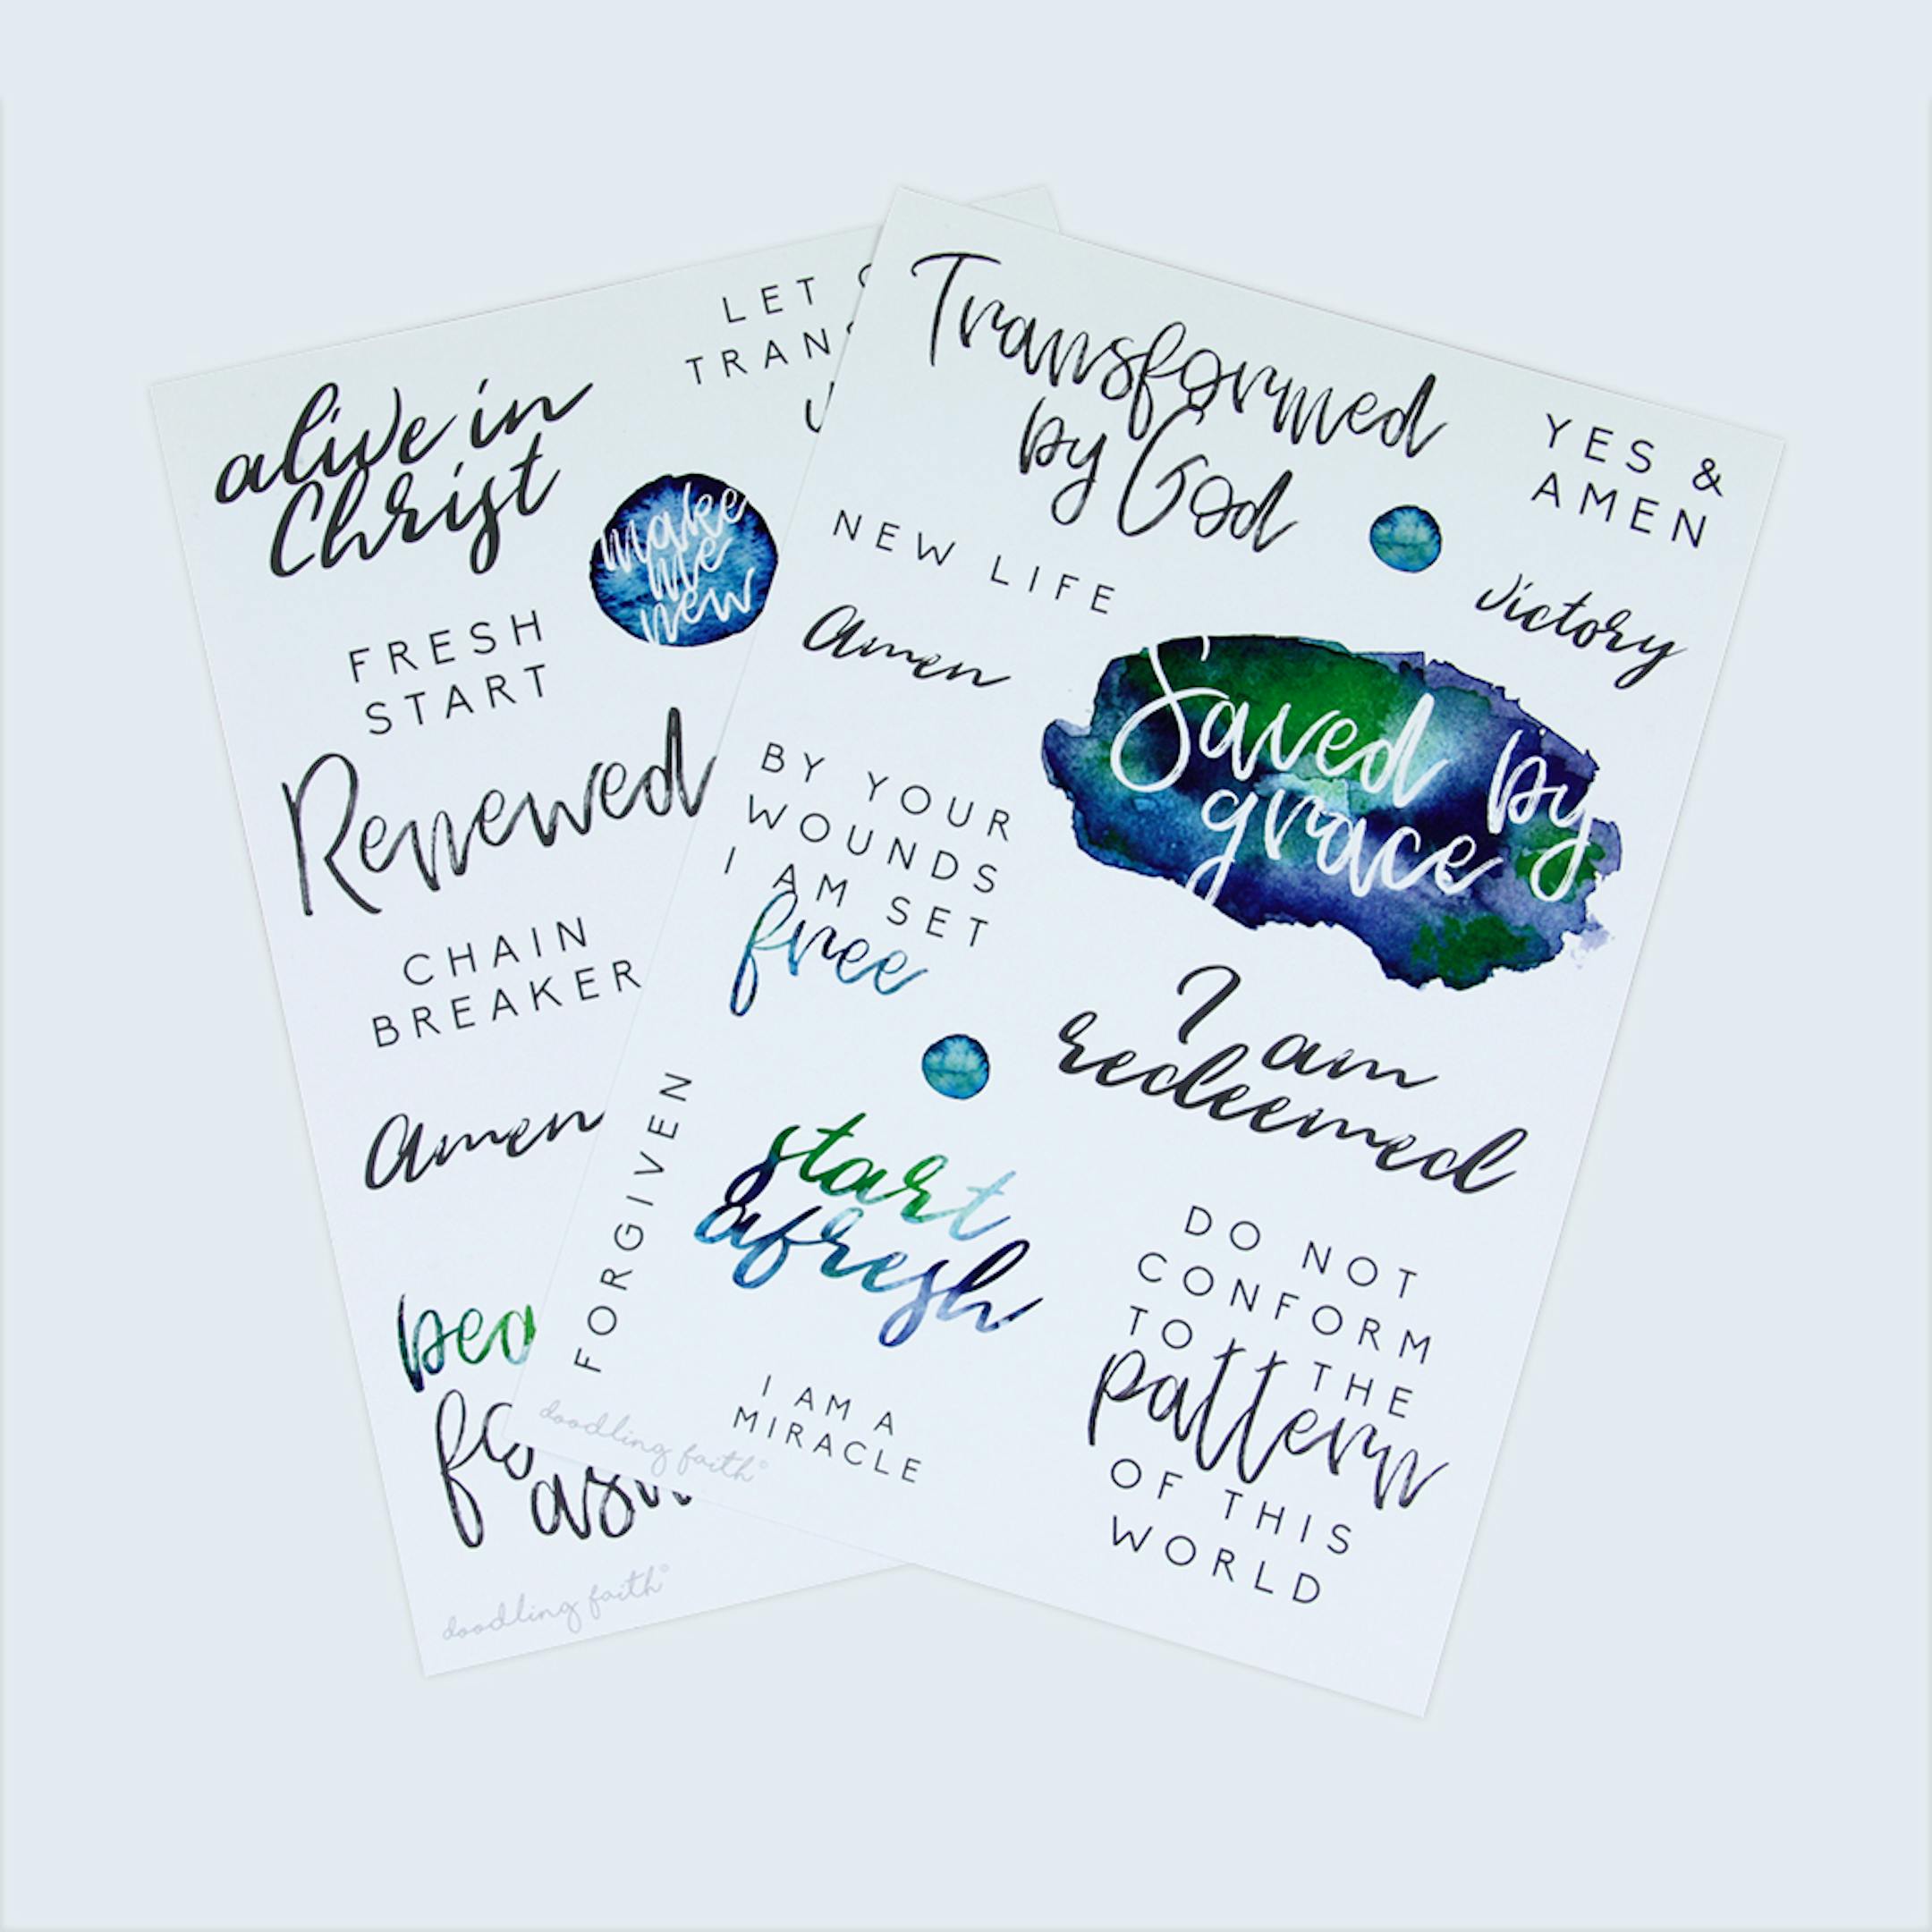 alive in
Christ
LET
make
me
new
FRESH
START
Renewed
CHAIN
BREAKER
Amen
doodling faith
Transformed
by God
YES &
AMEN
NEW LIFE
victory
Amen
Saved by
grace
BY YOUR
WOUNDS
I AM SET
free
I am
redeemed
FORGIVEN
start
afresh
DO NOT
CONFORM
TO THE
pattern
OF THIS
WORLD
I AM A
MIRACLE
doodling faith